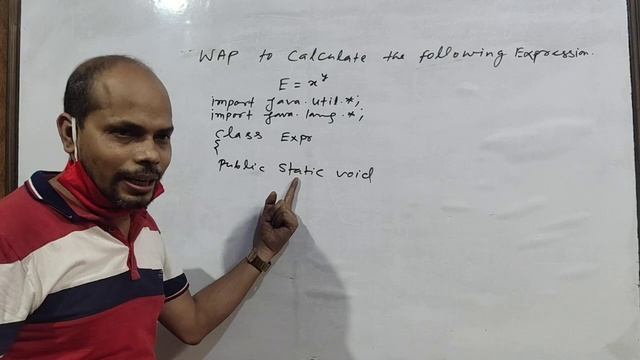 WAP to Calculate the following Expression.
E = x^y
import java.util.*;
import java.lang.*;
class Expr
{
Public Static void